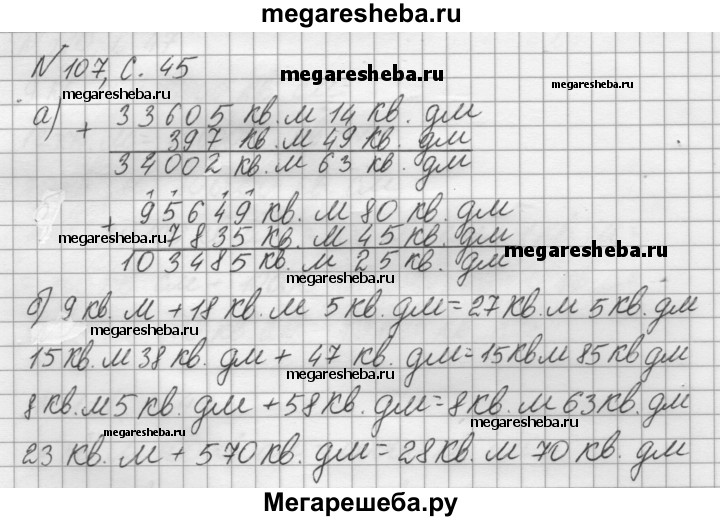 megaresheba.ru
N 107, с. 45
megaresheba.ru
megaresheba.ru
megaresheba.ru
а) + 33605 кв. м 14 кв. дм
397 кв. м 49 кв. дм
34002 кв. м 63 кв. дм
1 1 1 1
+ 95649 кв. м 80 кв. дм
7835 кв. м 45 кв. дм
megaresheba.ru
megaresheba.ru
103485 кв. м 25 кв. дм
б) 9 кв. м + 18 кв. м 5 кв. дм = 27 кв. м 5 кв. дм
megaresheba.ru
15 кв. м 38 кв. дм + 47 кв. дм = 15 кв м 85 кв дм
megaresheba.ru
8 кв. м 5 кв. дм + 58 кв. дм = 8 кв. м 63 кв. дм
megaresheba.ru
megaresheba.ru
23 кв. м + 570 кв. дм = 28 кв. м 70 кв. дм
Мегарешеба.ру